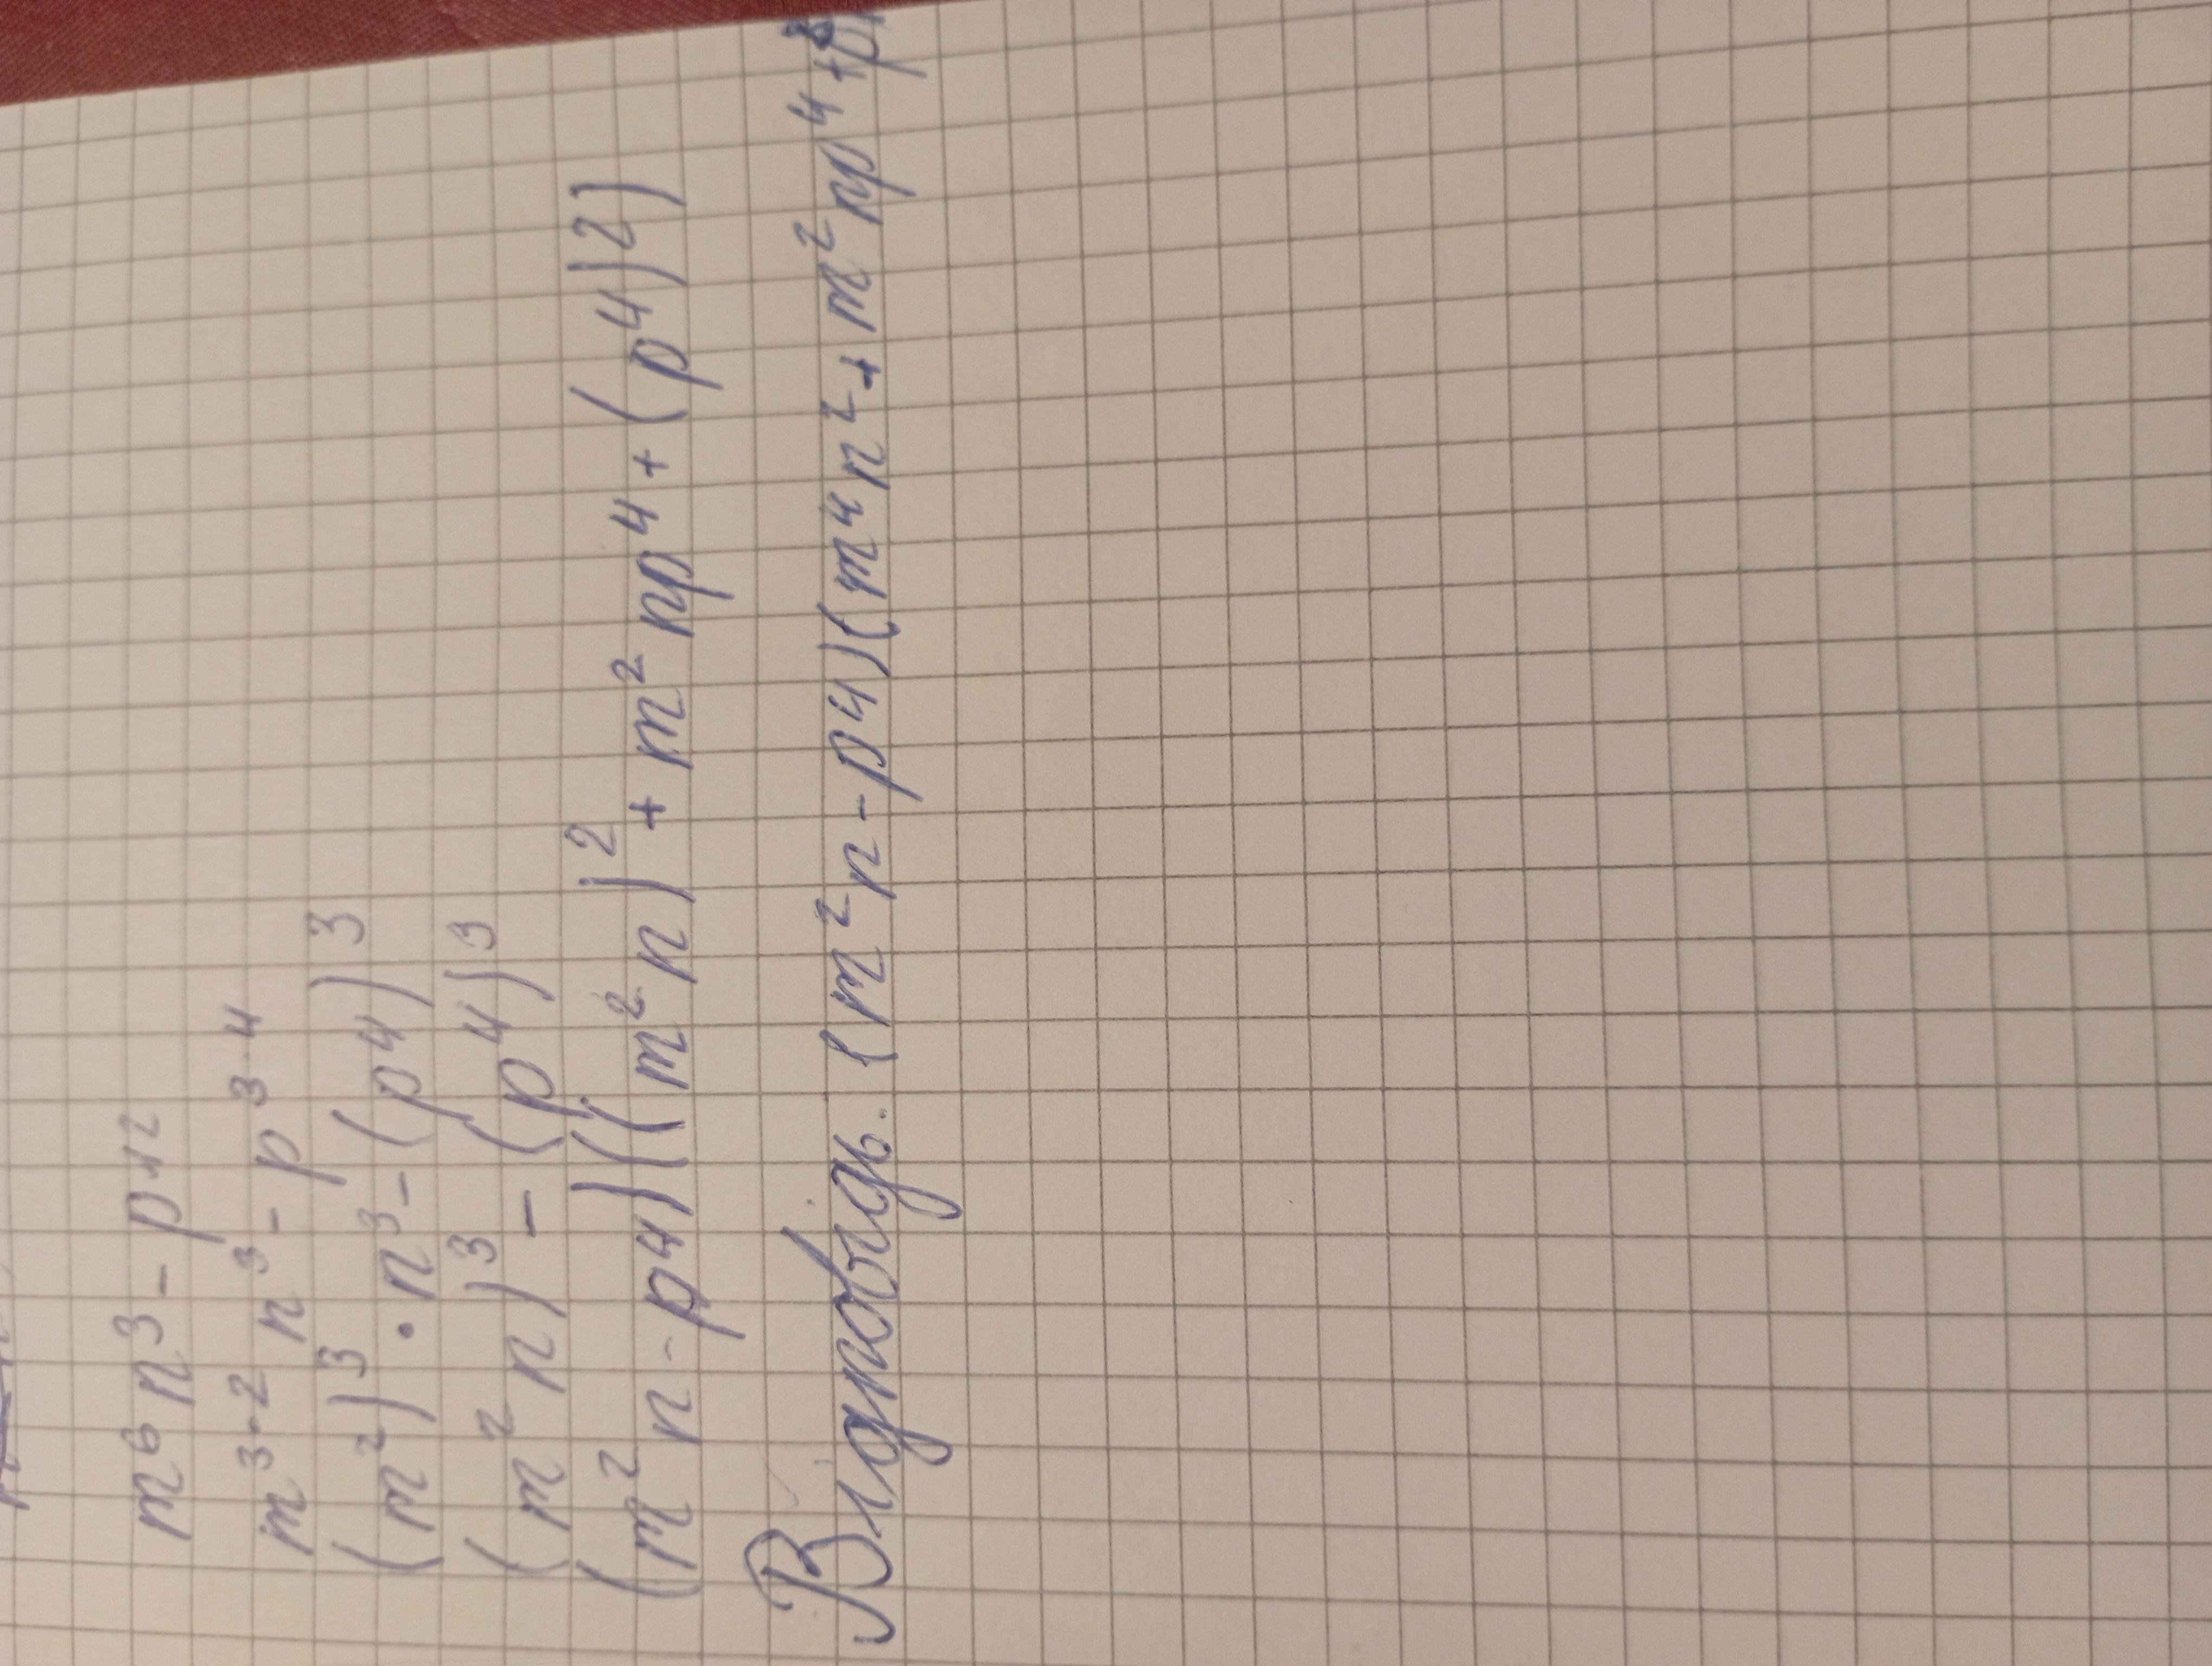 m⁶n³ - p¹²
m³·²n³ - p³·⁴
(m²)³ · n³ - (p⁴)³
(m²n)³ - (p⁴)³
(m²n - p⁴)((m²n)² + m²np⁴ + (p⁴)2)
Відповідь. (m²n - p4)(m⁴n² + m²np⁴ + p⁸